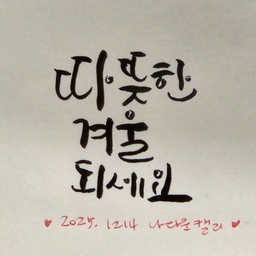 따뜻한
겨울
되세요
♥ 2025. 1214 나다운캘리 ♥